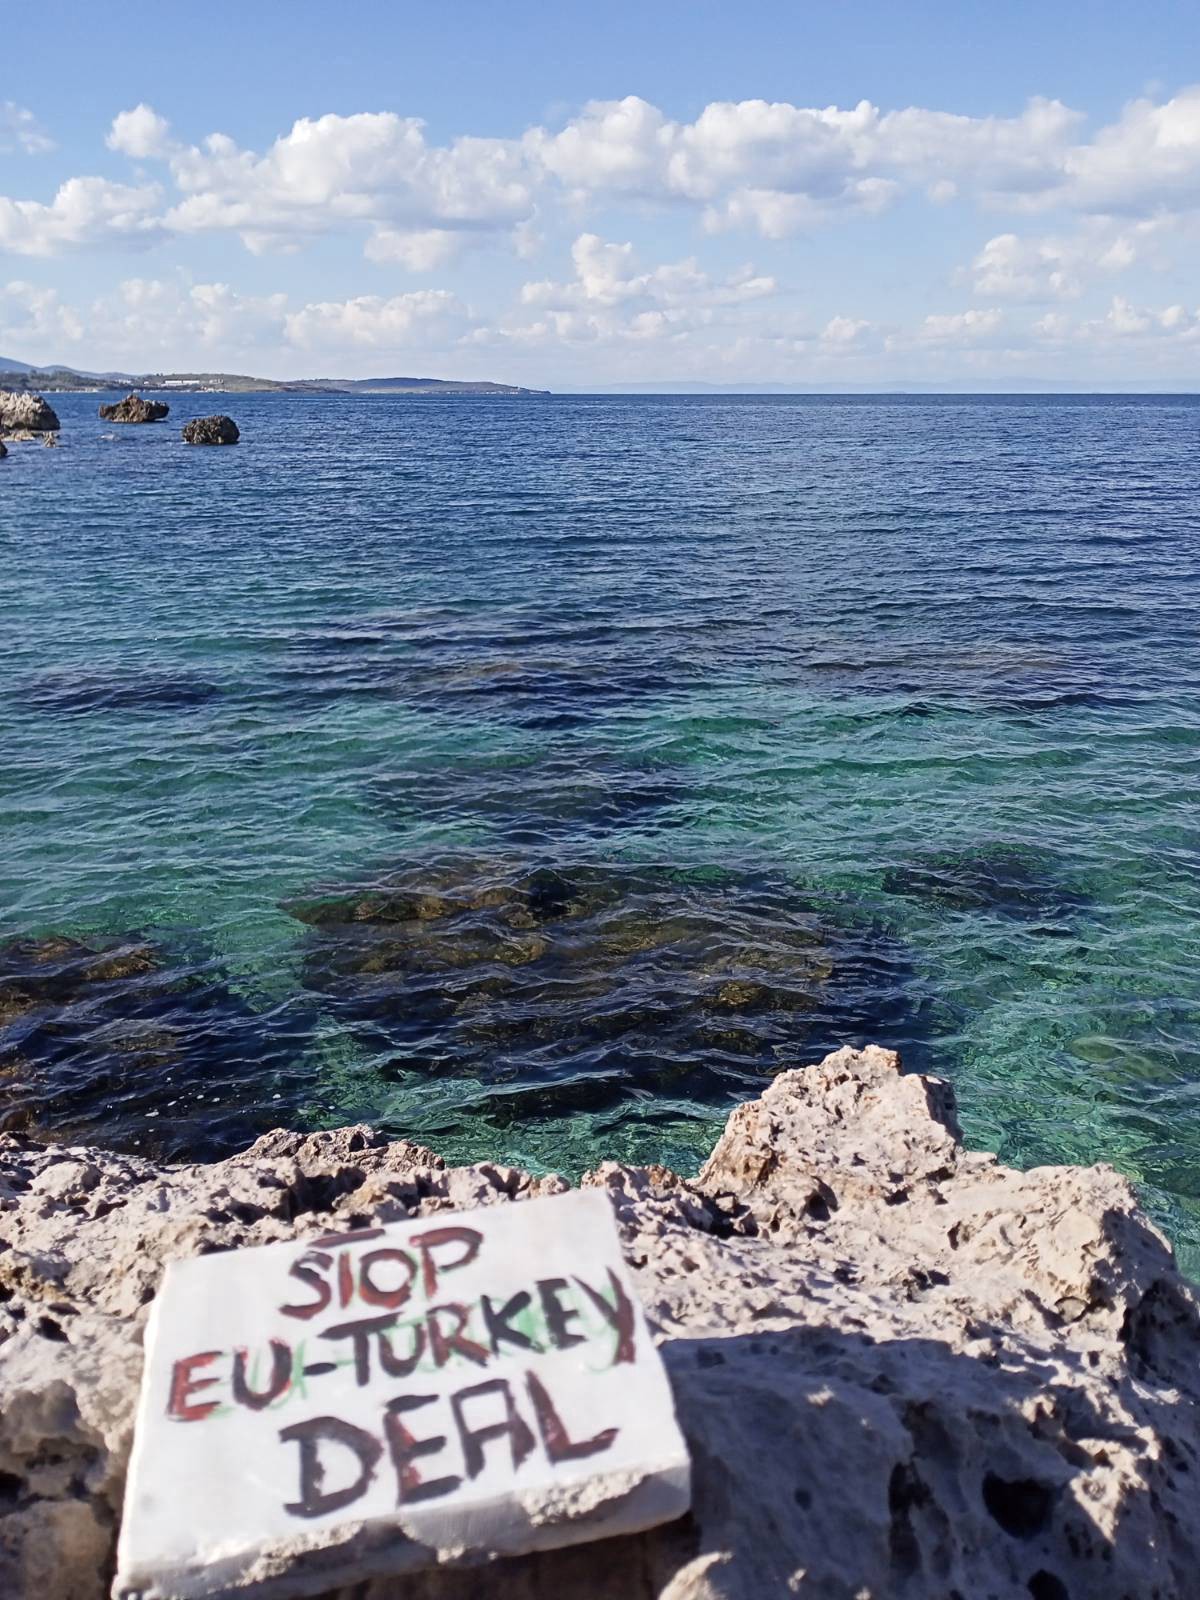 STOP
EU-TURKEY
DEAL